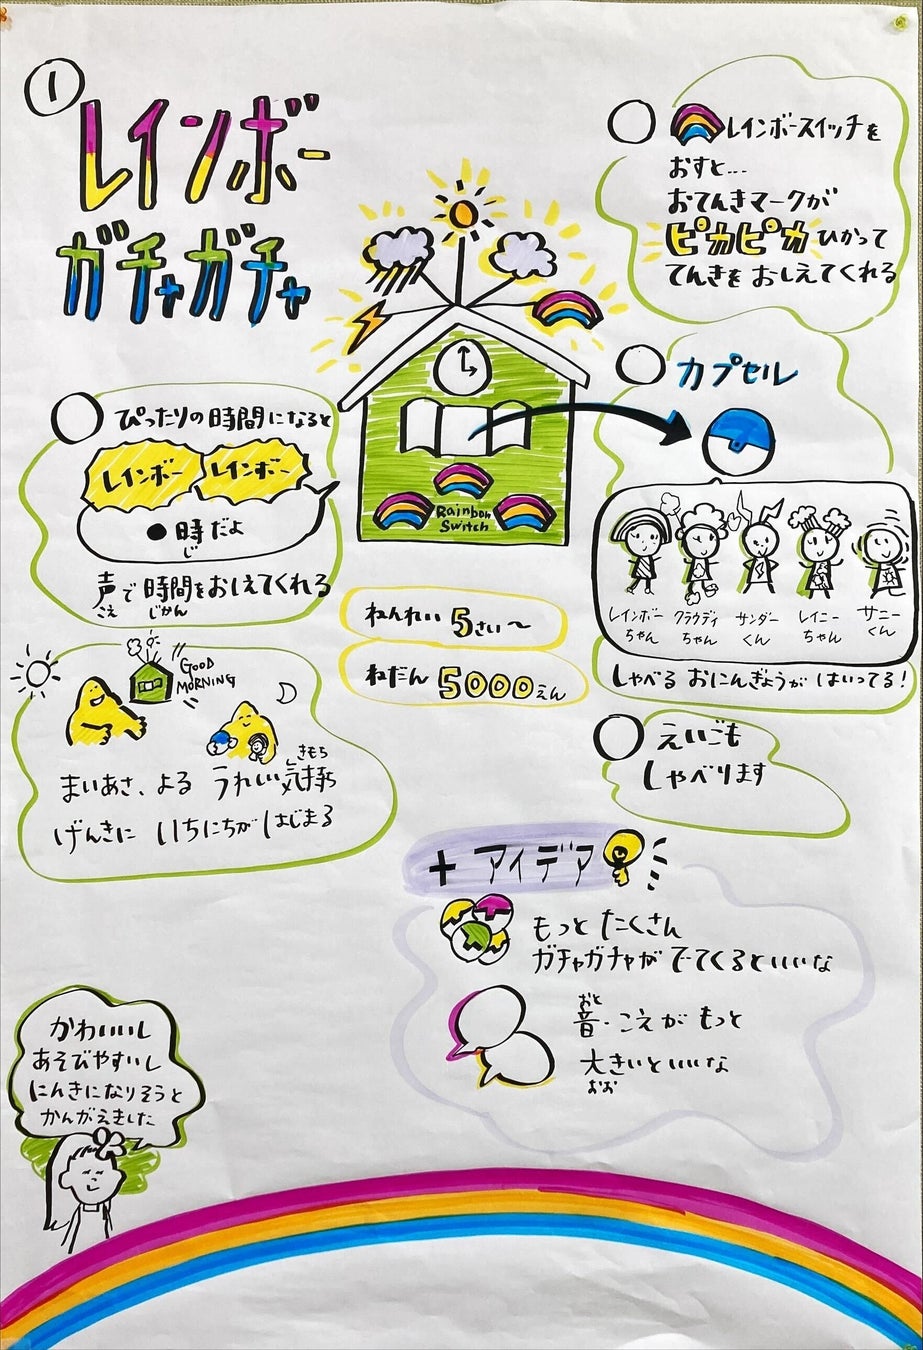 ①
レインボー
ガチャガチャ
レインボースイッチを
おすと…
おてんきマークが
ピカピカ ひかって
てんきを おしえてくれる
ぴったりの時間になると
レインボー レインボー
●時だよ
じ
声で時間をおしえてくれる
こえ じかん
Rainbow
Switch
カプセル
レインボー
ちゃん
クラウディ
ちゃん
サンダー
くん
レイニー
ちゃん
サニー
くん
しゃべる おにんぎょうが はいってる!
ねんれい 5さい〜
ねだん 5000えん
GOOD
MORNING
きもち
まいあさ、よる うれしい気持ち
げんきに いちにちが はじまる
えいごも
しゃべります
+ アイデア
もっと たくさん
ガチャガチャが でてくるといいな
おと
音・こえが もっと
大きいといいな
おお
かわいいし
あそびやすいし
にんきになりそうと
かんがえました